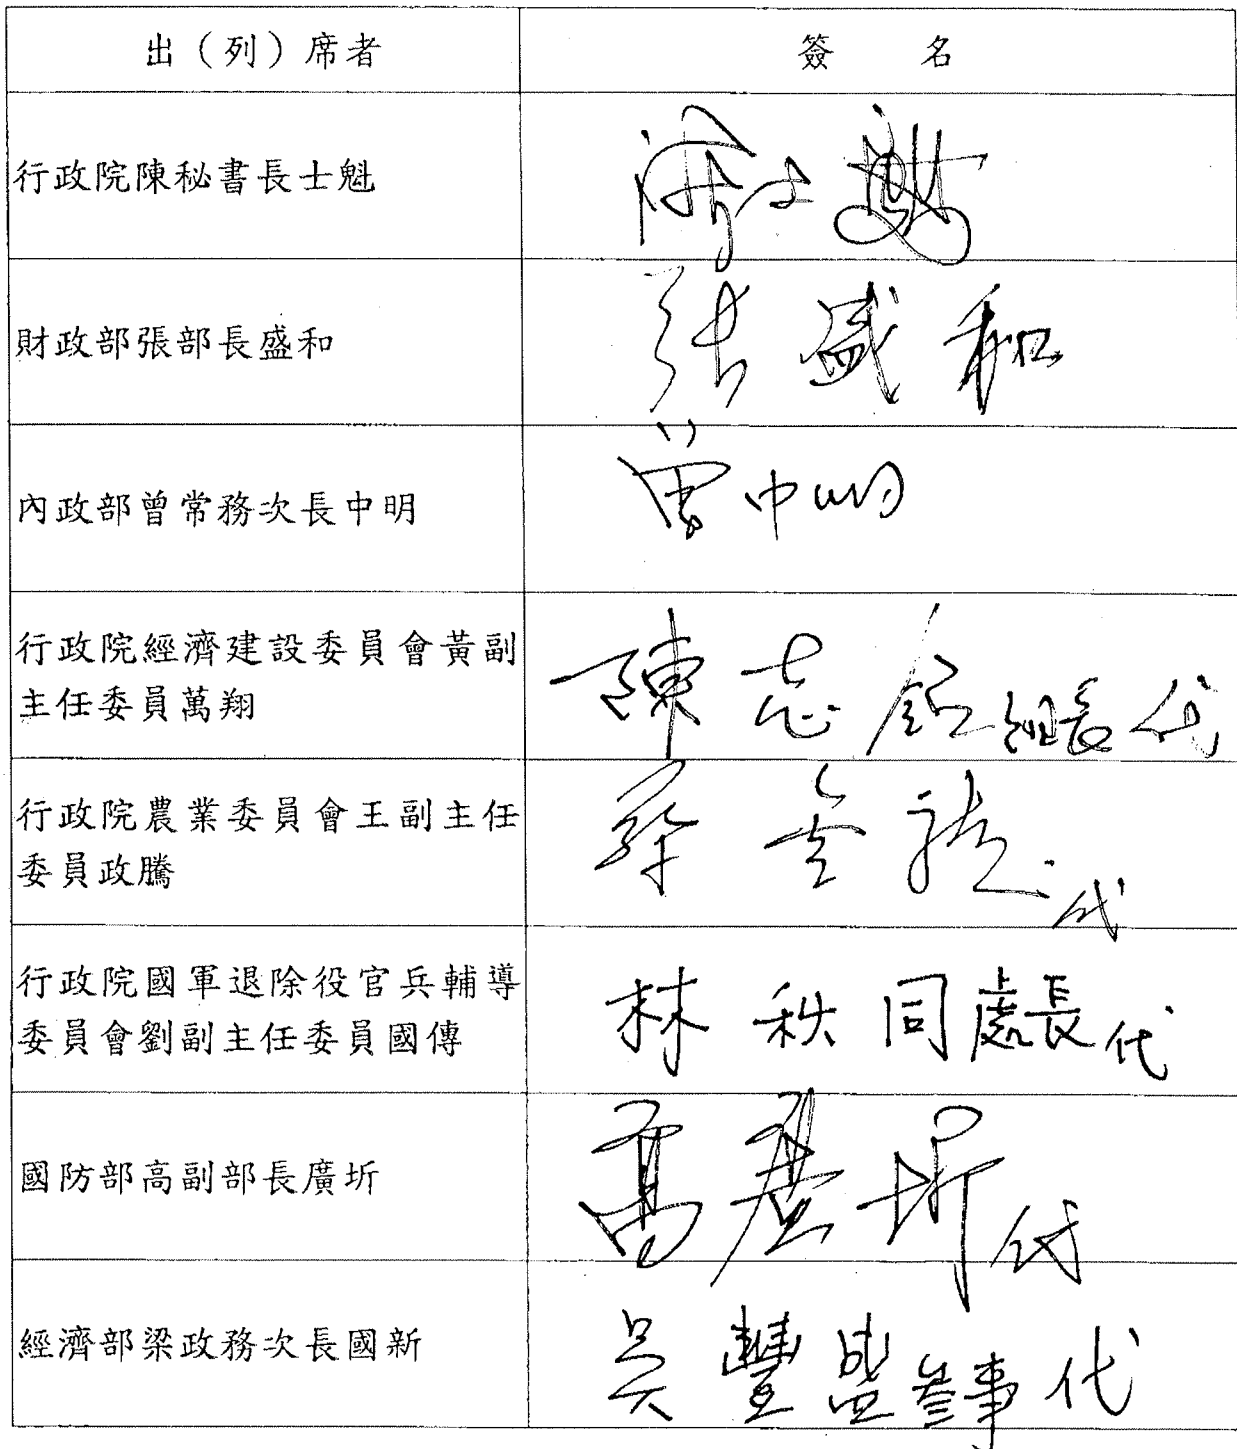 出(列)席者
簽 名
行政院陳秘書長士魁
陳士魁
財政部張部長盛和
張盛和
內政部曾常務次長中明
曾中明
行政院經濟建設委員會黃副
主任委員萬翔
陳志 組長代
行政院農業委員會王副主任
委員政騰
代
行政院國軍退除役官兵輔導
委員會劉副主任委員國傳
林秩同處長代
國防部高副部長廣圻
高廣圻
經濟部梁政務次長國新
吳豐盛參事代